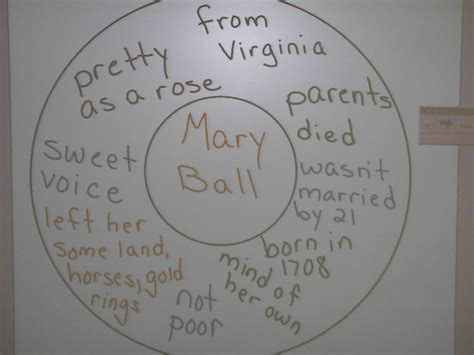 from
Virginia
pretty
as a rose
parents
died
Mary
Ball
sweet
voice
wasn't
married
by 21
left her
some land,
horses, gold
rings
born in
1708
mind of
her own
not
poor